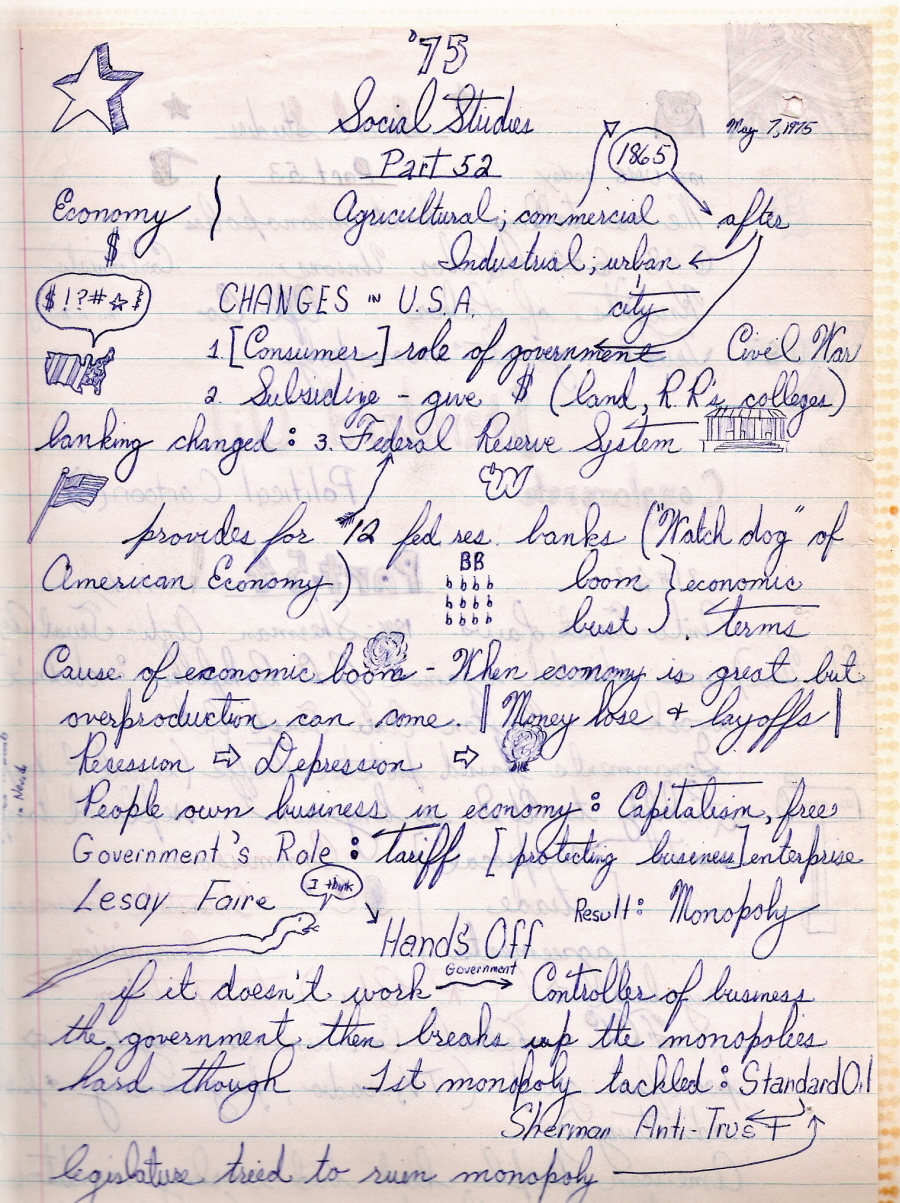 '75
Social Studies
May 7, 1975
Part 52
1865
Economy ) Agricultural; commercial after
$ Industrial; urban
$!?#☆ CHANGES IN U.S.A. city
1. [Consumer] role of government Civil War
2. Subsidize - give $ (land, R.R's, colleges)
banking changed: 3. Federal Reserve System
EW
provides for 12 fed res. banks ("Watch dog" of
American Economy) BB boom } economic
bbbb
bbbb
bbbb bust } . terms
Cause of economic boom - When economy is great but
overproduction can come. | Money lose + layoffs |
Recession ⇨ Depression ⇨
People own business in economy: Capitalism, free
Government's Role: tariff [protecting business] enterprise
Lesay Faire I think Result: Monopoly
Hands Off
if it doesn't work Government → Controller of business
the government then breaks up the monopolies
hard though 1st monopoly tackled: Standard Oil
Sherman Anti-Trust
legislature tried to ruin monopoly